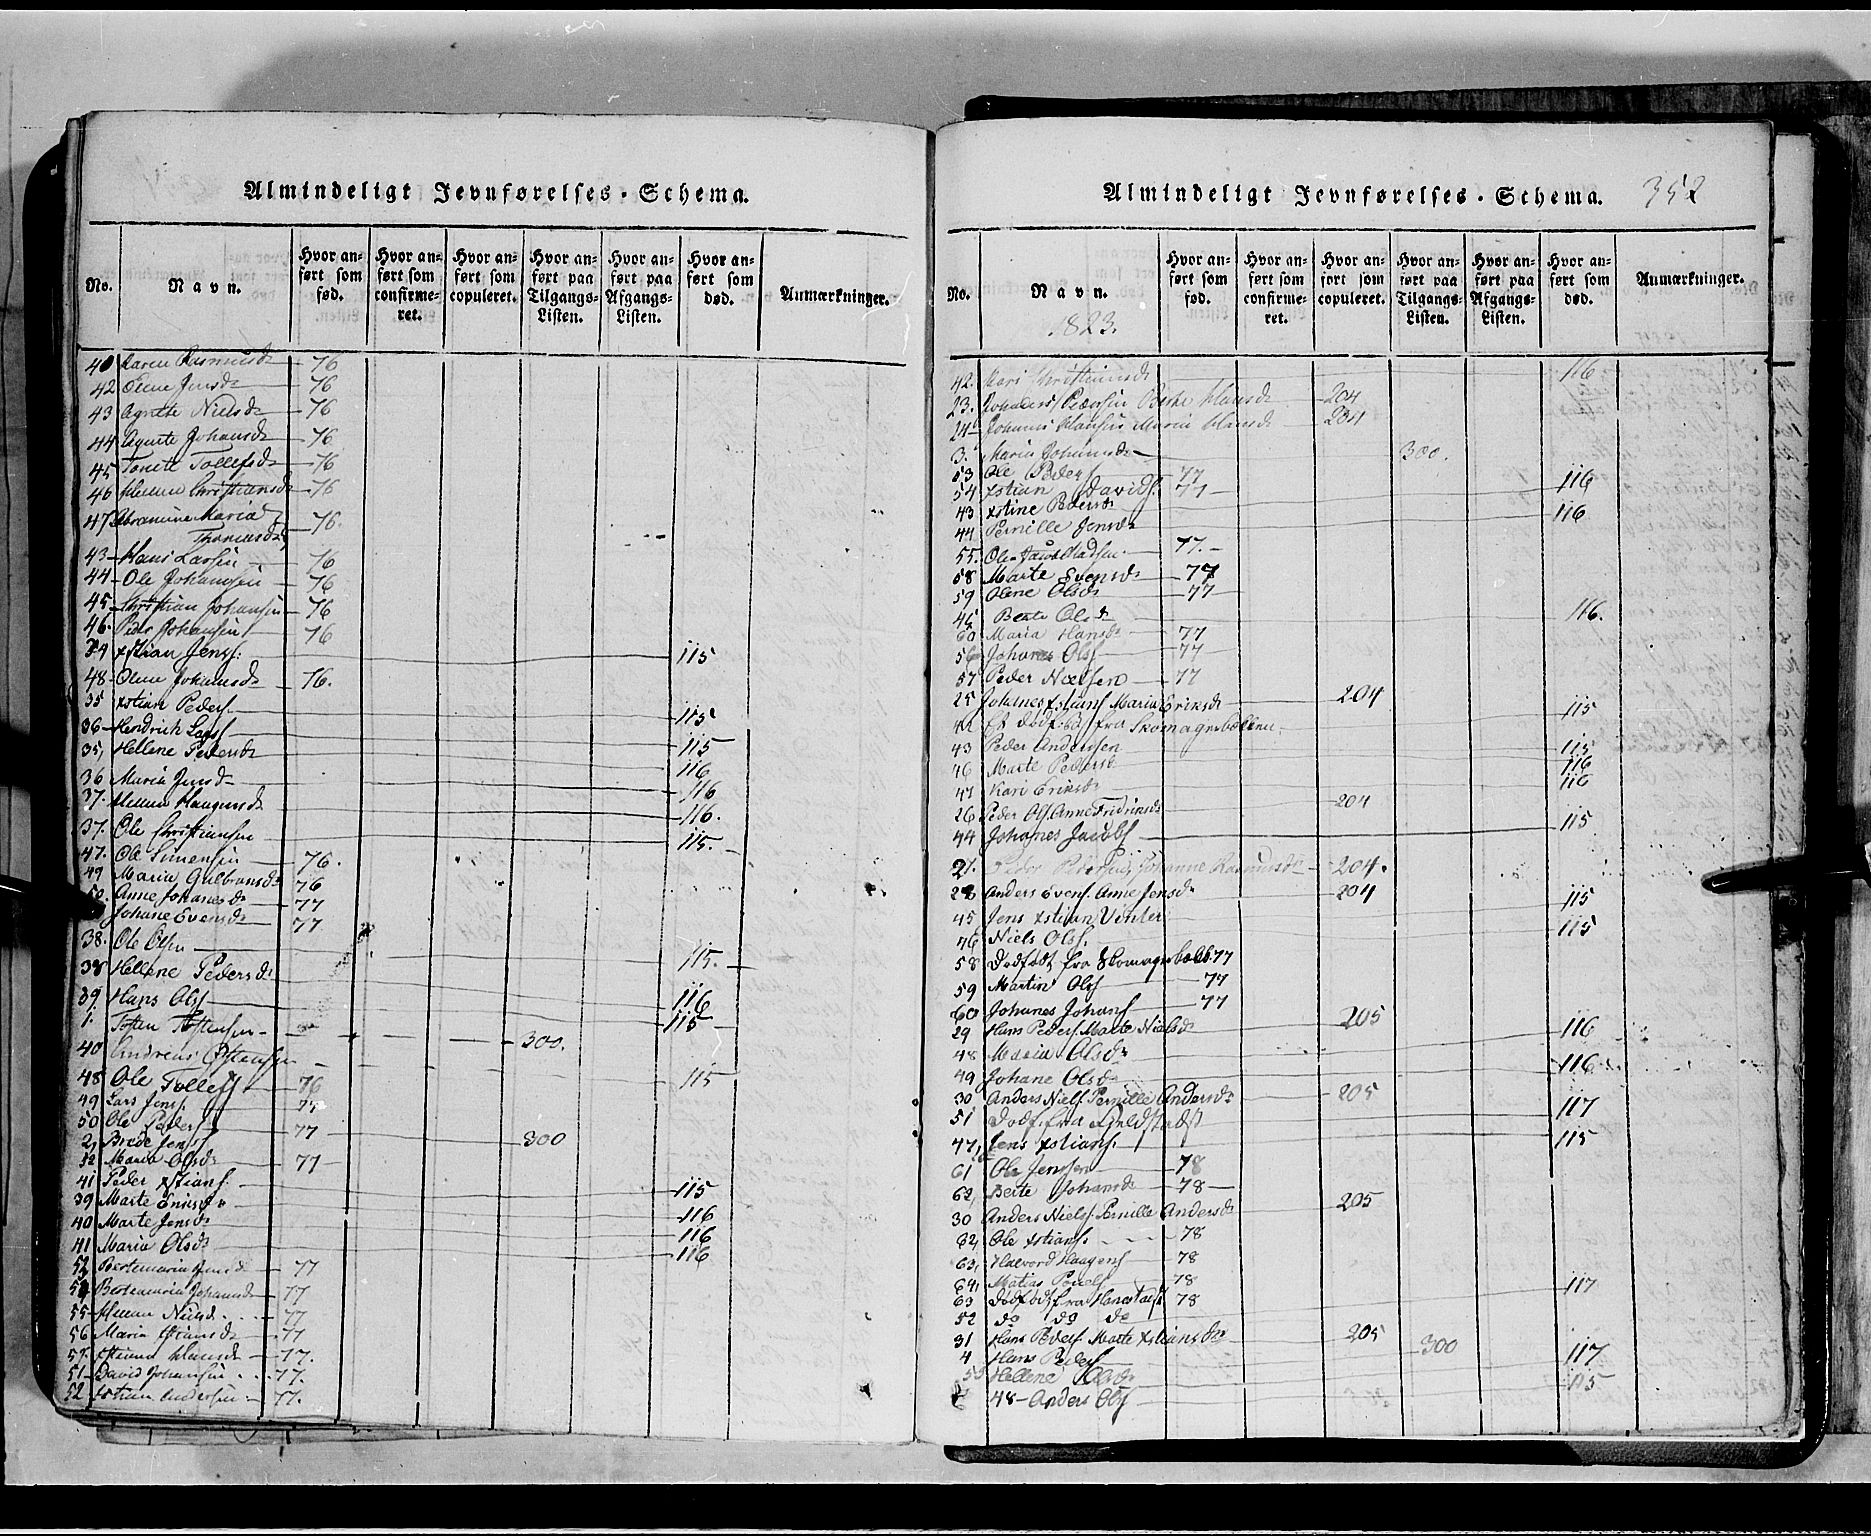 Almindeligt Jevnførelses-Schema.
No. Navn. Hvor anført som fød. Hvor anført som confirmeret. Hvor anført som copuleret. Hvor anført paa Tilgangs-Listen. Hvor anført paa Afgangs-Listen. Hvor anført som død. Anmærkninger.
Karen Rasmusd 76
42 Oline Jensd 76
43 Agnete Nielsd 76
44 Agnete Johansd 76
45 Tonete Tollefsd 76
46 Hellene Christiansd 76
47 Abramine Maria
Thomasd 76.
43 Hans Larsen 76
44 Ole Johansen 76
45 Christian Johansen 76
46. Peder Johansen 76
34 Xstian Jenss: 115
48 Oline Johansd 76.
35 Xstian Peders. 115
36 Hendrich Larss 115
35, Hellene Pedersd 116
36 Maria Jensd 116
37. Hellene Haagensd 116.
37. Ole Christiansen 115.
47. Ole Simensen 76.
49 Maria Gulbransd 76
50. Anne Johanesd 77
Johane Evensd 77
38. Ole Olsen 115.
38 Hellene Pedersd 116
39 Hans Olss 115
1. Tosten Tostensen 300.
40 Andreas Ostensen 115
48 Ole Tollefs 76
49 Lars Jens. 77
50 Ole Peders 77
2, Brede Jenss 300
52 Maria Olsd 77
41 Peder Xstians. 115
39 Marte Eriksd 116
40 Marte Jensd 116
41 Maria Olsd 116
53 Bertemaria Jensd 77
54 Bertemaria Johansd 77
55 Hellene Nielsd 77
56 Maria Hansd 77
57. Hansd 77.
51 David Johansen 77.
52 Xstian Andersen 77.
Almindeligt Jevnførelses-Schema. 352
No. Navn. Hvor anført som fød. Hvor anført som confirmeret. Hvor anført som copuleret. Hvor anført paa Tilgangs-Listen. Hvor anført paa Afgangs-Listen. Hvor anført som død. Anmærkninger.
1823.
42. Kari Christiansd 116
23. Johanes Pedersen Berte Hansd 204
24 Johanes Hansen Maria Hansd 204
3. Maria Johansd 300.
53 Ole Peders 77
54 Xstian Davids. 77 116
43 Xstine Pedersd 116
44 Pernille Jensd
55. Ole Madsen 77.
58 Marte Evensd 77
59 Oline Olsd 77
45 Berte Olsd 116.
60 Maria Hansd 77
56 Johanes Olss 77
57 Peder Nielsen 77
25 Johanes Xstians Maria Eriksd 204 115
Et dødf. b. fra Skomagerbakken.
43 Peder Anderssen 115
46 Marte Pedersd 116
47 Kari Eriksd 116
26 Peder Ols. Anne Fridriksd 204
44 Johanes Jacobs 115
27. Peder Peders Johanne Rasmusd 204.
28 Anders Evens. Anne Jensd 204 115
45 Jens Xstian Venter 115
46 Niels Olss.
58 Dødfødt fra Skomagerbakk 77
59 Martin Olss 77
60 Johanes Johans 77
29 Hans Peders. Marte Nielsd 205 116
48 Maria Olsd 116
49 Johane Olsd
30 Anders Niels. Pernille Andersd 205
51 Dødf. fra Kjeldstadst 117
47, Jens Xstians. 115
61 Ole Jenssen 78
62, Berte Johansd 78
30 Anders Niels. Pernille Andersd 205
62, Ole Xstians. 78
63, Halvord Haagens 78
64, Matias Povels 78 117
63 Dødfødt fra 78
52 do do do
31 Hans Peders. Marte Xstiansd 205
4 Hans Peders 300
Hellene Olsd 117
48 Anders Olss 115